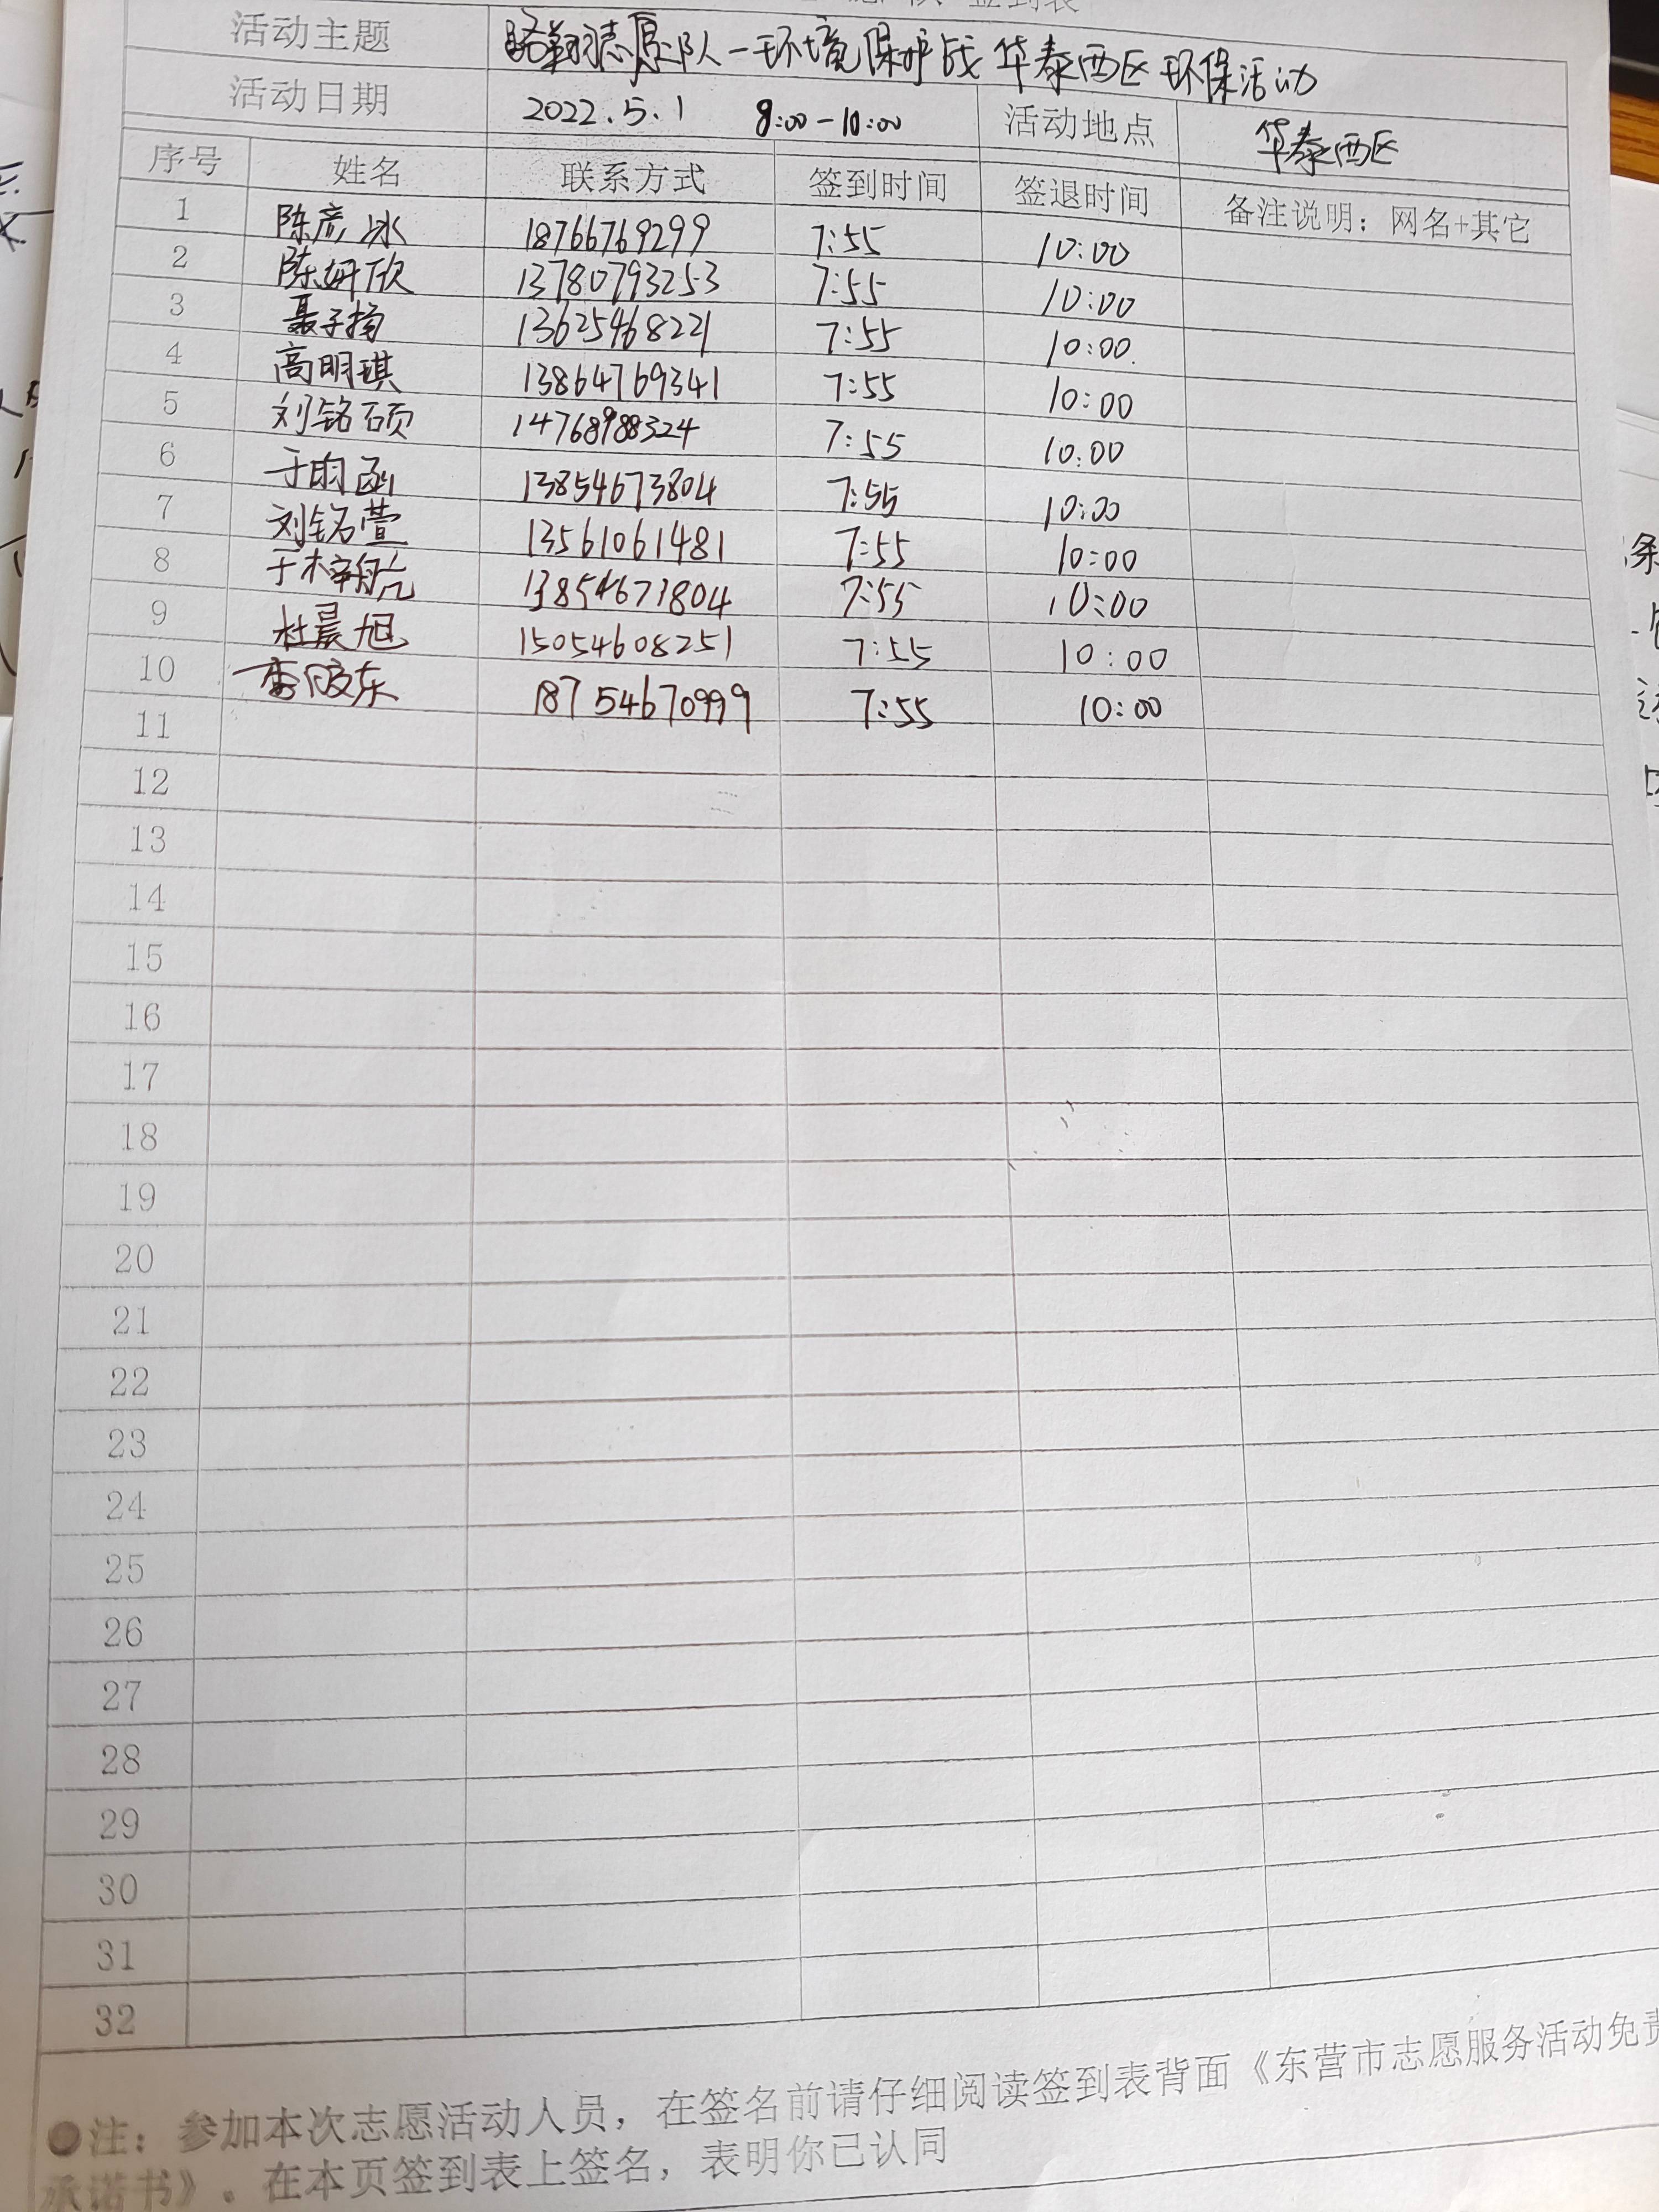 签到表
活动主题 路翔志愿队-环境保护战 华泰西区环保活动
活动日期 2022.5.1 8:00-10:00 活动地点 华泰西区
序号 姓名 联系方式 签到时间 签退时间 备注说明：网名+其它
1 陈彦冰 18766769299 7:55 10:00
2 陈妍欣 13780793253 7:55 10:00
3 聂子扬 13625468221 7:55 10:00
4 高明琪 13864769341 7:55 10:00
5 刘铭硕 14768988324 7:55 10:00
6 于昀函 13854673804 7:55 10:00
7 刘铭萱 13561061481 7:55 10:00
8 于梓航 13854673804 7:55 10:00
9 杜晨旭 15054608251 7:55 10:00
10 李俊东 18754670999 7:55 10:00
11
12
13
14
15
16
17
18
19
20
21
22
23
24
25
26
27
28
29
30
31
32
●注：参加本次志愿活动人员，在签名前请仔细阅读签到表背面《东营市志愿服务活动免责
承诺书》。在本页签到表上签名，表明你已认同